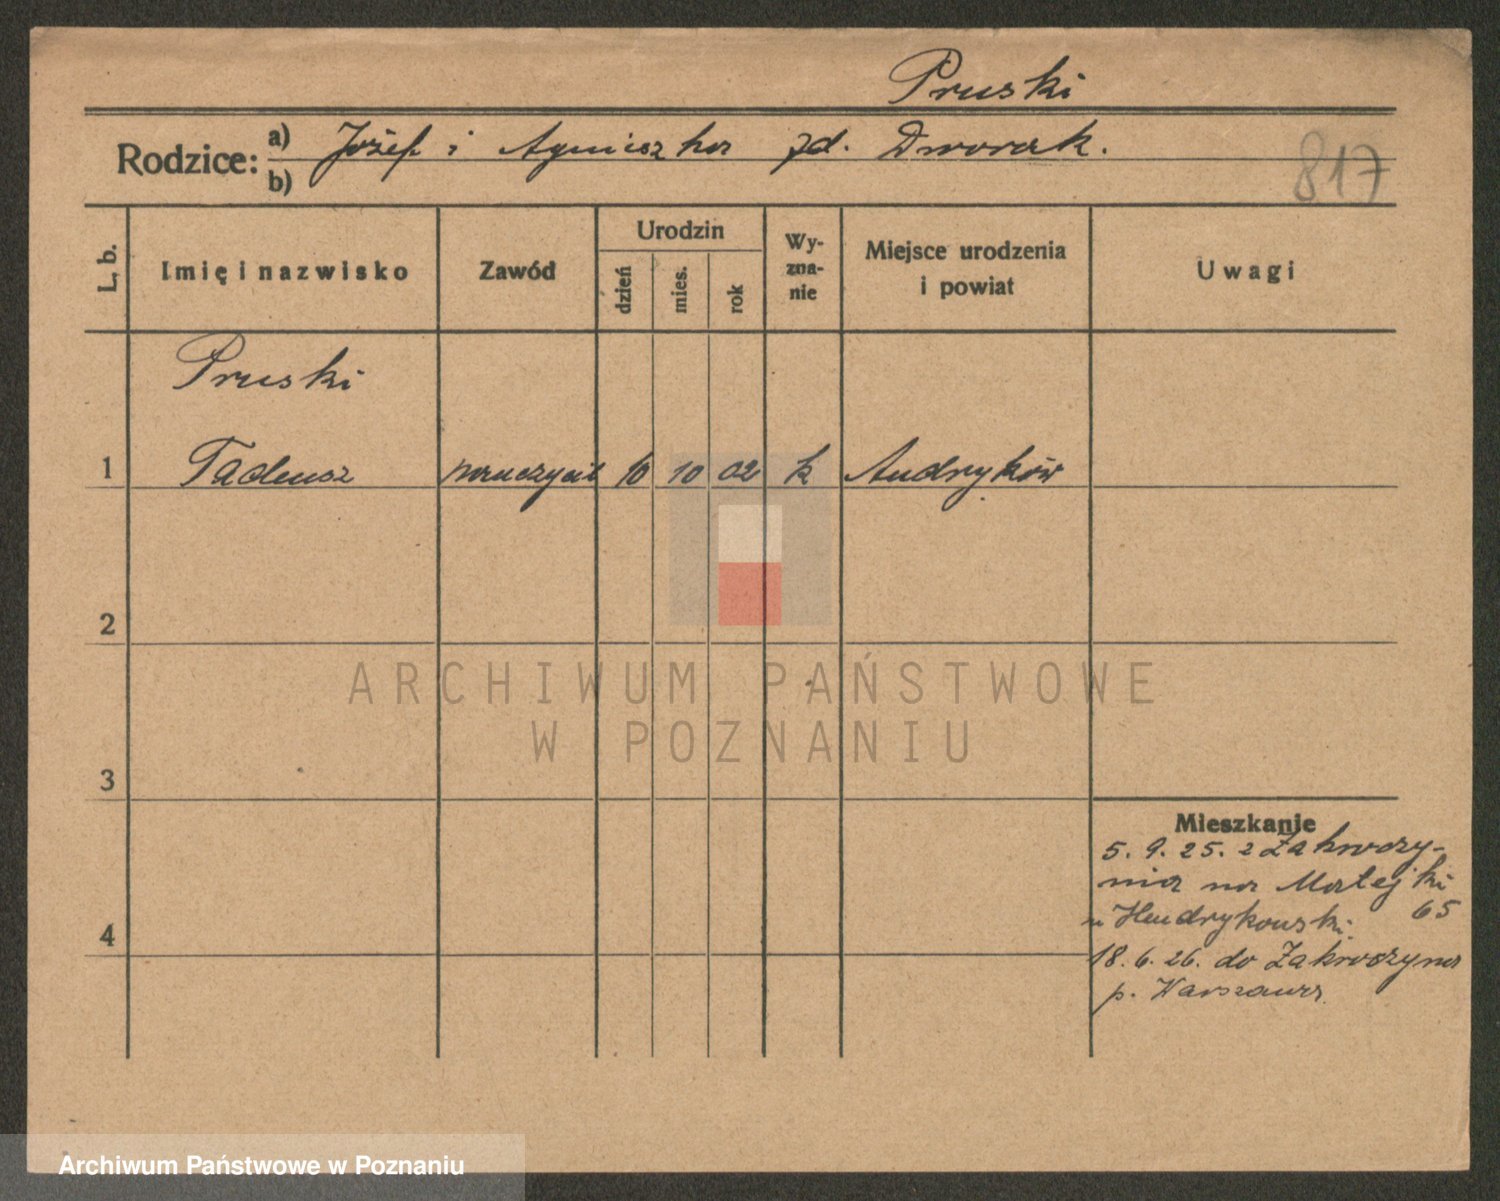 Pruski
Rodzice: a) Józef i Agnieszka zd. Dworak.
b)
817
L. b. Imię i nazwisko Zawód Urodzin dzień mies. rok Wy-zna-nie Miejsce urodzenia i powiat Uwagi
Pruski
1 Tadeusz nauczyciel 10 10 02 k Andryków
2
ARCHIWUM PAŃSTWOWE
W POZNANIU
3
Mieszkanie
5. 9. 25. z Zakroczy-
mia na Matejki
u Hendrykowski 65
4
18. 6. 26. do Zakroczyma
p. Warszawa
Archiwum Państwowe w Poznaniu